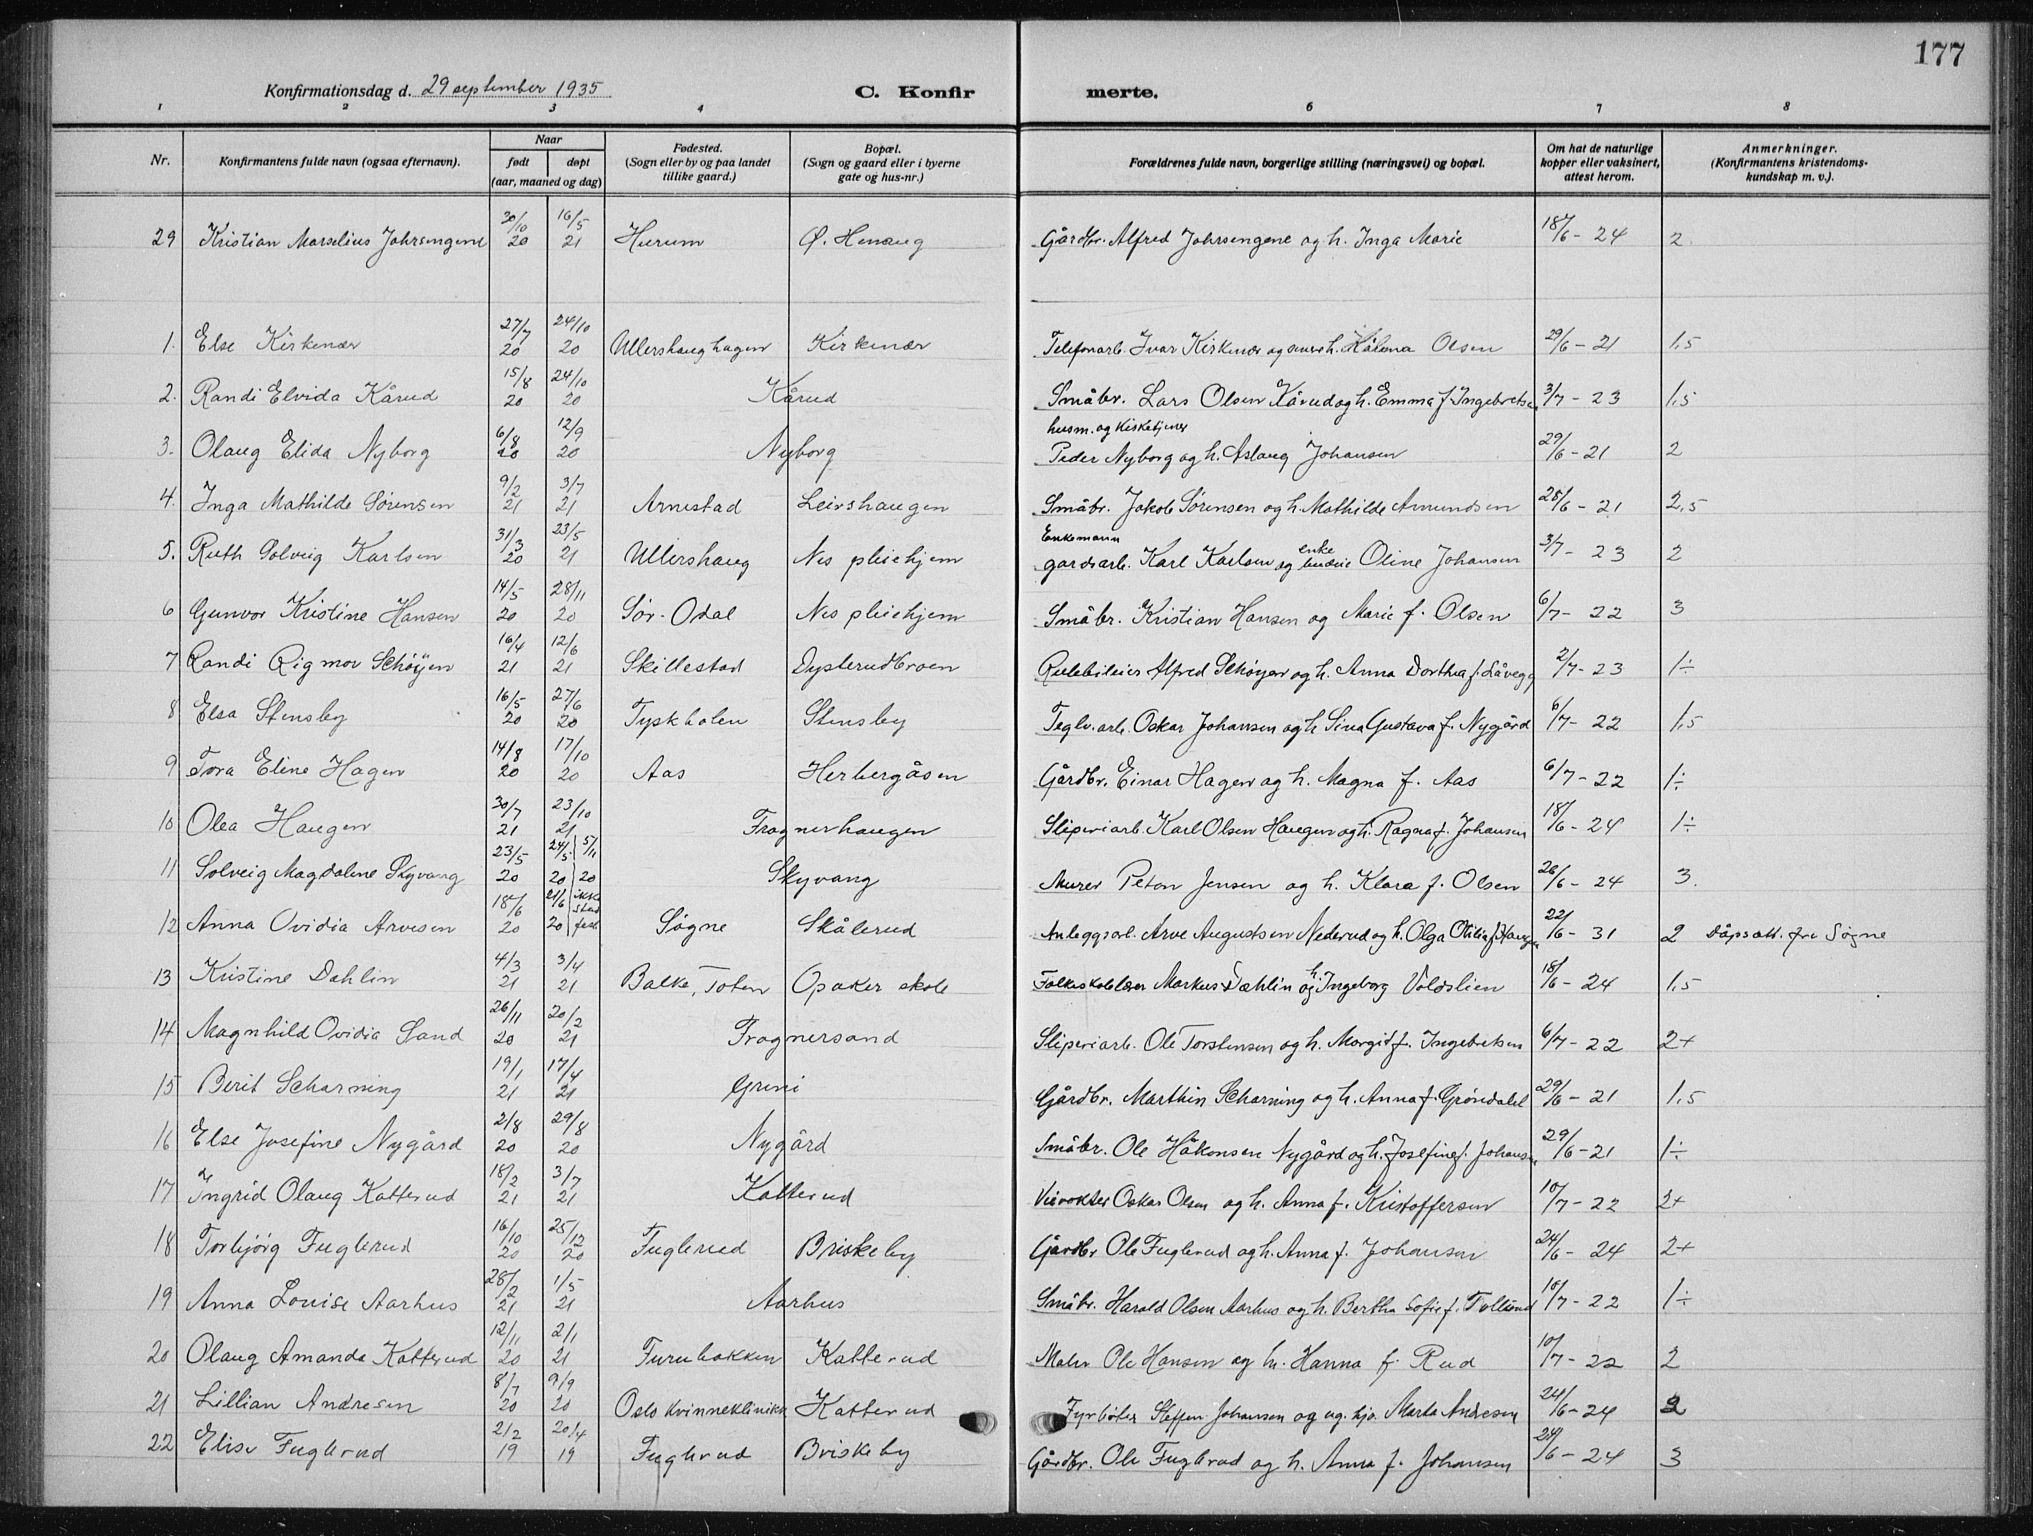 177
Konfirmationsdag d. 29 september 1935
C. Konfirmerte.
1 2 3 4 6 7 8
Nr. Konfirmantens fulde navn (ogsaa efternavn). Naar født døpt (aar, maaned og dag) Fødested. (Sogn eller by og paa landet tillike gaard.) Bopæl. (Sogn og gaard eller i byerne gate og hus-nr.) Forældrenes fulde navn, borgerlige stilling (næringsvei) og bopæl. Om hat de naturlige kopper eller vaksinert, attest herom. Anmerkninger. (Konfirmantens kristendomskundskap m. v.).
29 Kristian Marselius Johrsengene 30/10 20 16/5 21 Hurum Ø. Henaug Gårdbr. Alfred Johrsengene og h. Inga Marie 18/6 - 24 2
1. Else Kirkenær 27/7 20 24/10 20 Ullershaughagen Kirkenær Telefonarb. Ivar Kirkenær og h. Olsen 29/6 - 21 1,5
2. Randi Elvida Kårud 15/8 20 24/10 20 Kårud Småbr. Lars Olsen Kårud og h. Emma f. Ingebretsen 3/7 - 23 1,5
3. Olaug Elida Nyborg 6/8 20 12/9 20 Nyborg husm. og kirketjener Peder Nyborg og h. Aslaug Johansen 29/6 - 21 2
4. Inga Mathilde Sørensen 9/2 21 3/7 21 Arnestad Leirshaugen Småbr. Jakob Sørensen og h. Mathilde Amundsen 28/6 - 21 2,5
5. Ruth Solveig Karlsen 31/3 20 23/5 21 Ullershaug Nes pleiehjem Enkemann gardsarb. Karl Karlsen og enke budeie Oline Johansen 3/7 - 23 2
6 Gunvor Kristine Hansen 14/5 20 28/11 20 Sør-Odal Nes pleiehjem Småbr. Kristian Hansen og Marie f. Olsen 6/7 - 22 3
7 Randi Rigmor Schøyen 16/4 21 12/6 21 Skillestad Dysterudbroen Rutebileier Alfred Schøyen og h. Anna Dorthea f. Låvegg 2/7 - 23 1÷
8 Elsa Stensby 16/5 20 27/6 20 Tyskholen Stensby Teglv.arb. Oskar Johansen og h. Sina Gustava f. Nygård 6/7 - 22 1,5
9 Tora Eline Hagen 14/8 20 17/10 20 Aas Herbergåsen Gårdbr. Einar Hagen og h. Magna f. Aas 6/7 - 22 1÷
10 Olea Haugen 30/7 21 23/10 21 Fragnerhaugen Sliperiarb. Karl Olsen Haugen og h. Ragna f. Johansen 18/6 - 24 1÷
11 Solveig Magdalene Skyvang 23/5 20 24/5 20 5/11 20 Skyvang Murer Peton Jensen og h. Klara f. Olsen 26/6 - 24 3.
12 Anna Ovidia Arvesen 18/6 20 21/6 20 ikke stadfest Søgne Skålerud Anleggsarb. Arve Augustsen Nederud og h. Olga Otilia f. Haugen 22/6 - 31 2 Dåpsatt. fra Søgne
13 Kristine Dahlin 4/3 21 3/4 21 Balke, Toten Opaker skole Folkeskolelærer Markus Dæhlin og h. Ingeborg Voldslien 18/6 - 24 1,5
14 Magnhild Ovidia Sand 26/11 20 20/2 21 Fragnersand Sliperiarb. Ole Torstensen og h. Margit f. Ingebretsen 6/7 - 22 2+
15 Berit Scharning 19/1 21 17/4 21 Grini Gårdbr. Marthin Scharning og h. Anna f. Grøndahl 29/6 - 21 1,5
16 Else Josefine Nygård 2/8 20 29/8 20 Nygård Småbr. Ole Håkonsen Nygård og h. Josefine f. Johansen 29/6 - 21 1÷
17 Ingrid Olaug Katterud 18/2 21 3/7 21 Katterud Veivokter Oskar Olsen og h. Anna f. Kristoffersen 10/7 - 22 2+
18 Torbjørg Fuglerud 16/10 20 25/12 20 Fuglerud Briskeby Gårdbr Ole Fuglerud og h. Anna f. Johansen 24/6 - 24 2+
19 Anna Louise Aarhus 28/2 21 1/5 21 Aarhus Småbr. Harald Olsen Aarhus og h. Bertha Sofie f. Tollund 10/7 - 22 1÷
20 Olaug Amanda Katterud 12/11 20 2/1 21 Furubakken Katterud Maler Ole Hansen og h. Hanna f. Rud 10/7 - 22 2
21 Lillian Andresen 8/7 20 9/9 20 Oslo kvinneklinikk Katterud Fyrbøter Steffen Johansen og ug. tjp. Marta Andresen 24/6 - 24 2
22 Elise Fuglerud 2/2 19 20/4 19 Fuglerud Briskeby Gårdbr. Ole Fuglerud og h. Anna f. Johansen 24/6 - 24 3